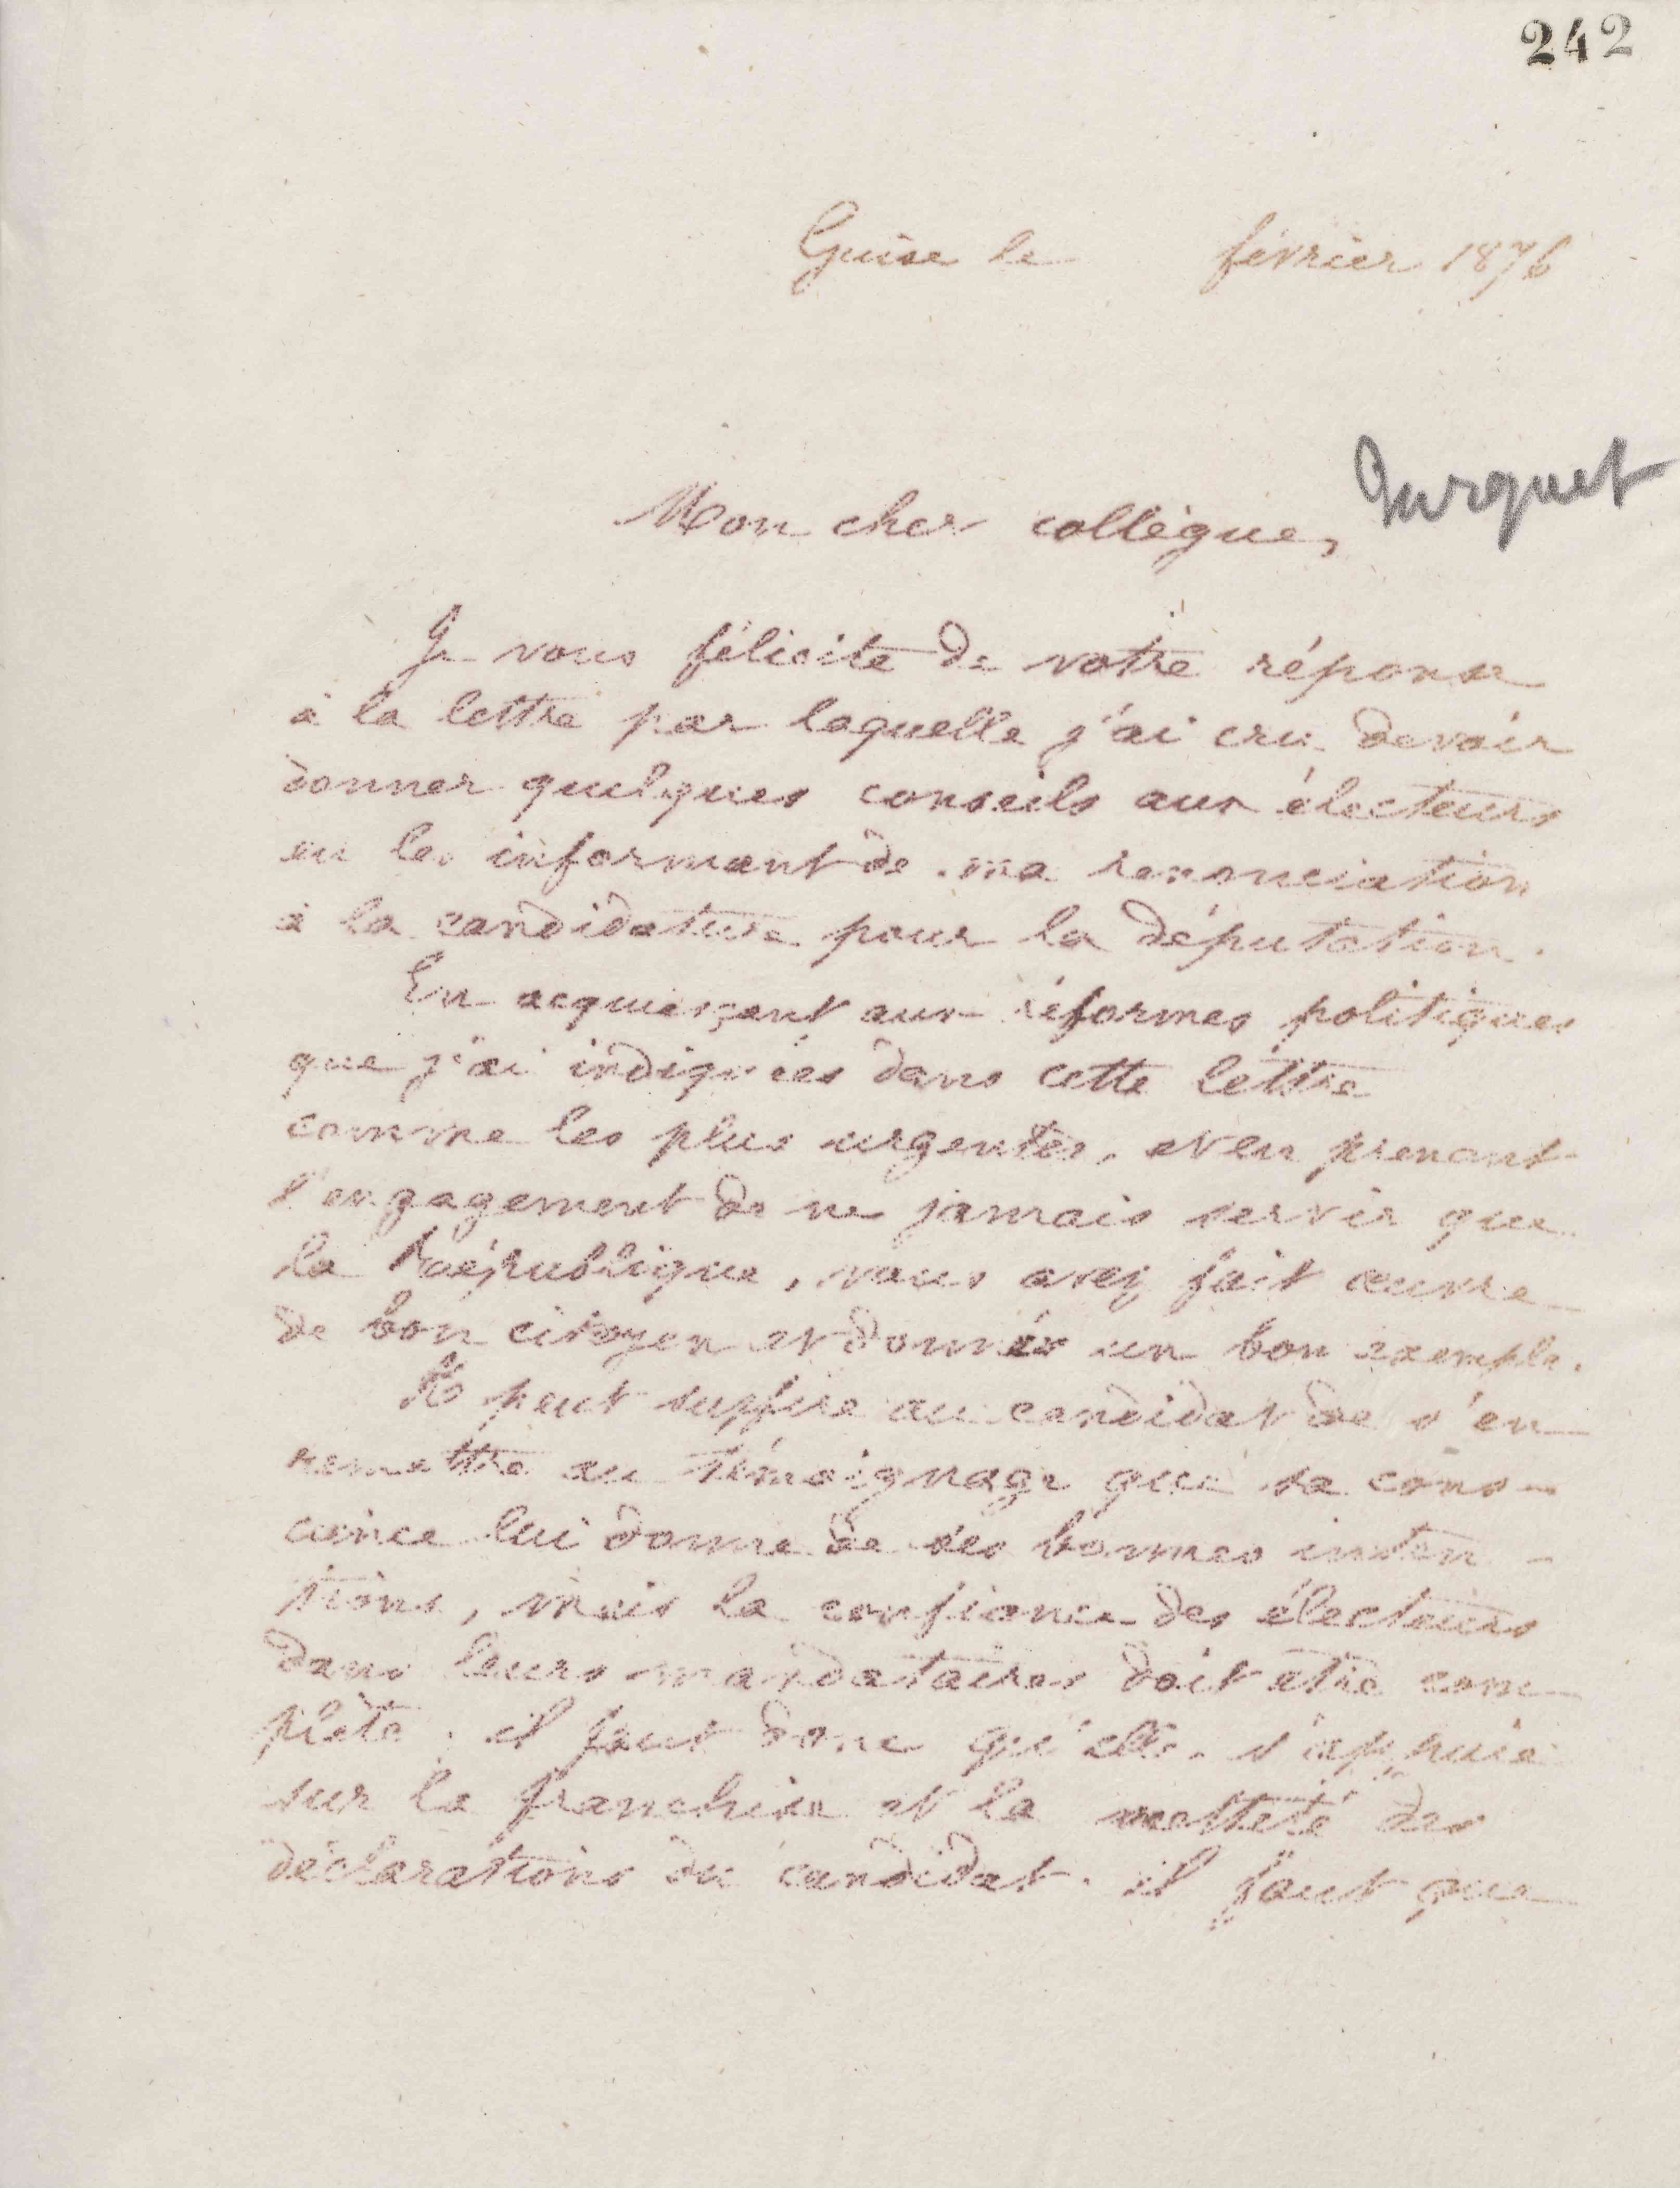 242
Guise le février 1876
Turquet
Mon cher collègue,
Je vous félicite de votre réponse
à la lettre par laquelle j'ai cru devoir
donner quelques conseils aux électeurs
en les informant de ma renonciation
à la candidature pour la députation.
En acquiesçant aux réformes politiques
que j'ai indiquées dans cette lettre
comme les plus urgentes, et en prenant
l'engagement de ne jamais servir que
la République, vous avez fait œuvre
de bon citoyen et donné un bon exemple.
Il peut suffire au candidat de s'en
remettre au témoignage que sa cons-
cience lui donne de ses bonnes inten-
tions, mais la confiance des électeurs
dans leurs mandataires doit être com-
plète ; il faut donc qu'elle s'appuie
sur la franchise et la netteté des
déclarations du candidat. il faut que